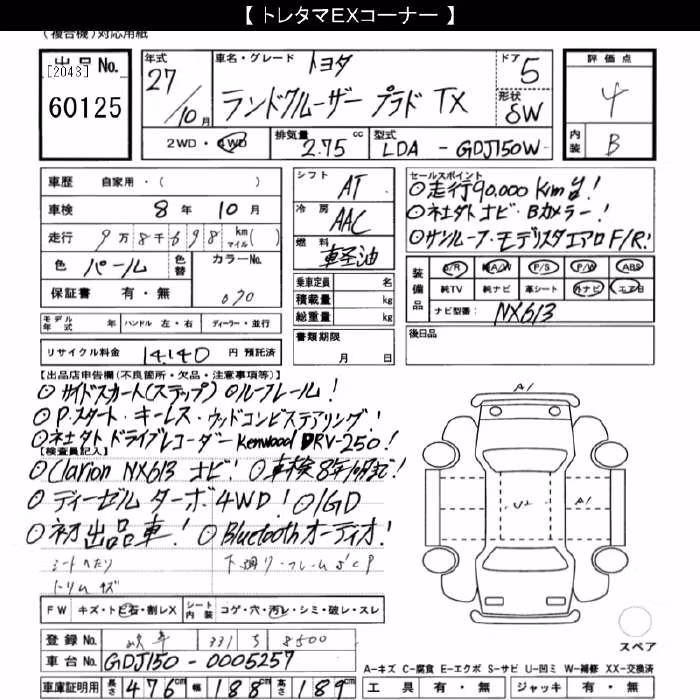 【 トレタマEXコーナー 】
(複合機)対応用紙
出品No. [2043] 60125
年式 27/10月
車名・グレード トヨタ ランドクルーザー プラド TX
ドア 5
形状 SW
評価点 4
内装 B
2WD・4WD 排気量 2.75 cc 型式 LDA - GDJ150W
車歴 自家用・( )
車検 8年 10月
走行 9万8千698 km マイル( )
色 パール 色替 カラーNo. 070
保証書 有・無
シフト AT
冷房 AAC
燃料 軽油
乗車定員 名
積載量 kg
総重量 kg
セールスポイント
◎走行90,000km台!
◎社外ナビ・Bカメラー!
◎サンルーフ・モデリスタエアロF/R!
装備品 S/R 純A/W P/S P/W ABS
純TV 純ナビ 革シート 外ナビ エアB
ナビ型番: NX613
モデル年式 年 ハンドル 左・右 ディーラー・並行
書類期限 月 日
後日品
リサイクル料金 14140 円 預託済
【出品店申告欄(不良箇所・欠品・注意事項等)】
◎サイドスカート(ステップ) ◎ルーフレール!
◎P.スタート・キーレス・ウッドコンビステアリング!
◎社外ドライブレコーダーKenwood DRV-250!
【検査員記入】
◎Clarion NX613 ナビ! ◎車検8年10月まで!
◎ディーゼルターボ4WD! ◎1GD
◎初出品車! ◎Bluetoothオーディオ!
シートヘたり
トリムキズ
A1
U2
A1
FW キズ・トビ石・割レX シート内装 コゲ・穴・汚レ・シミ・破レ・スレ
登録No. 岐阜 331 8500
車台No. GDJ150-0005257
車庫証明用 長さ 476cm 幅 188cm 高さ 189cm
スペア
A-キズ C-腐食 E-エクボ S-サビ U-凹ミ W-補修 XX-交換済
工具 有・無 ジャッキ 有・無